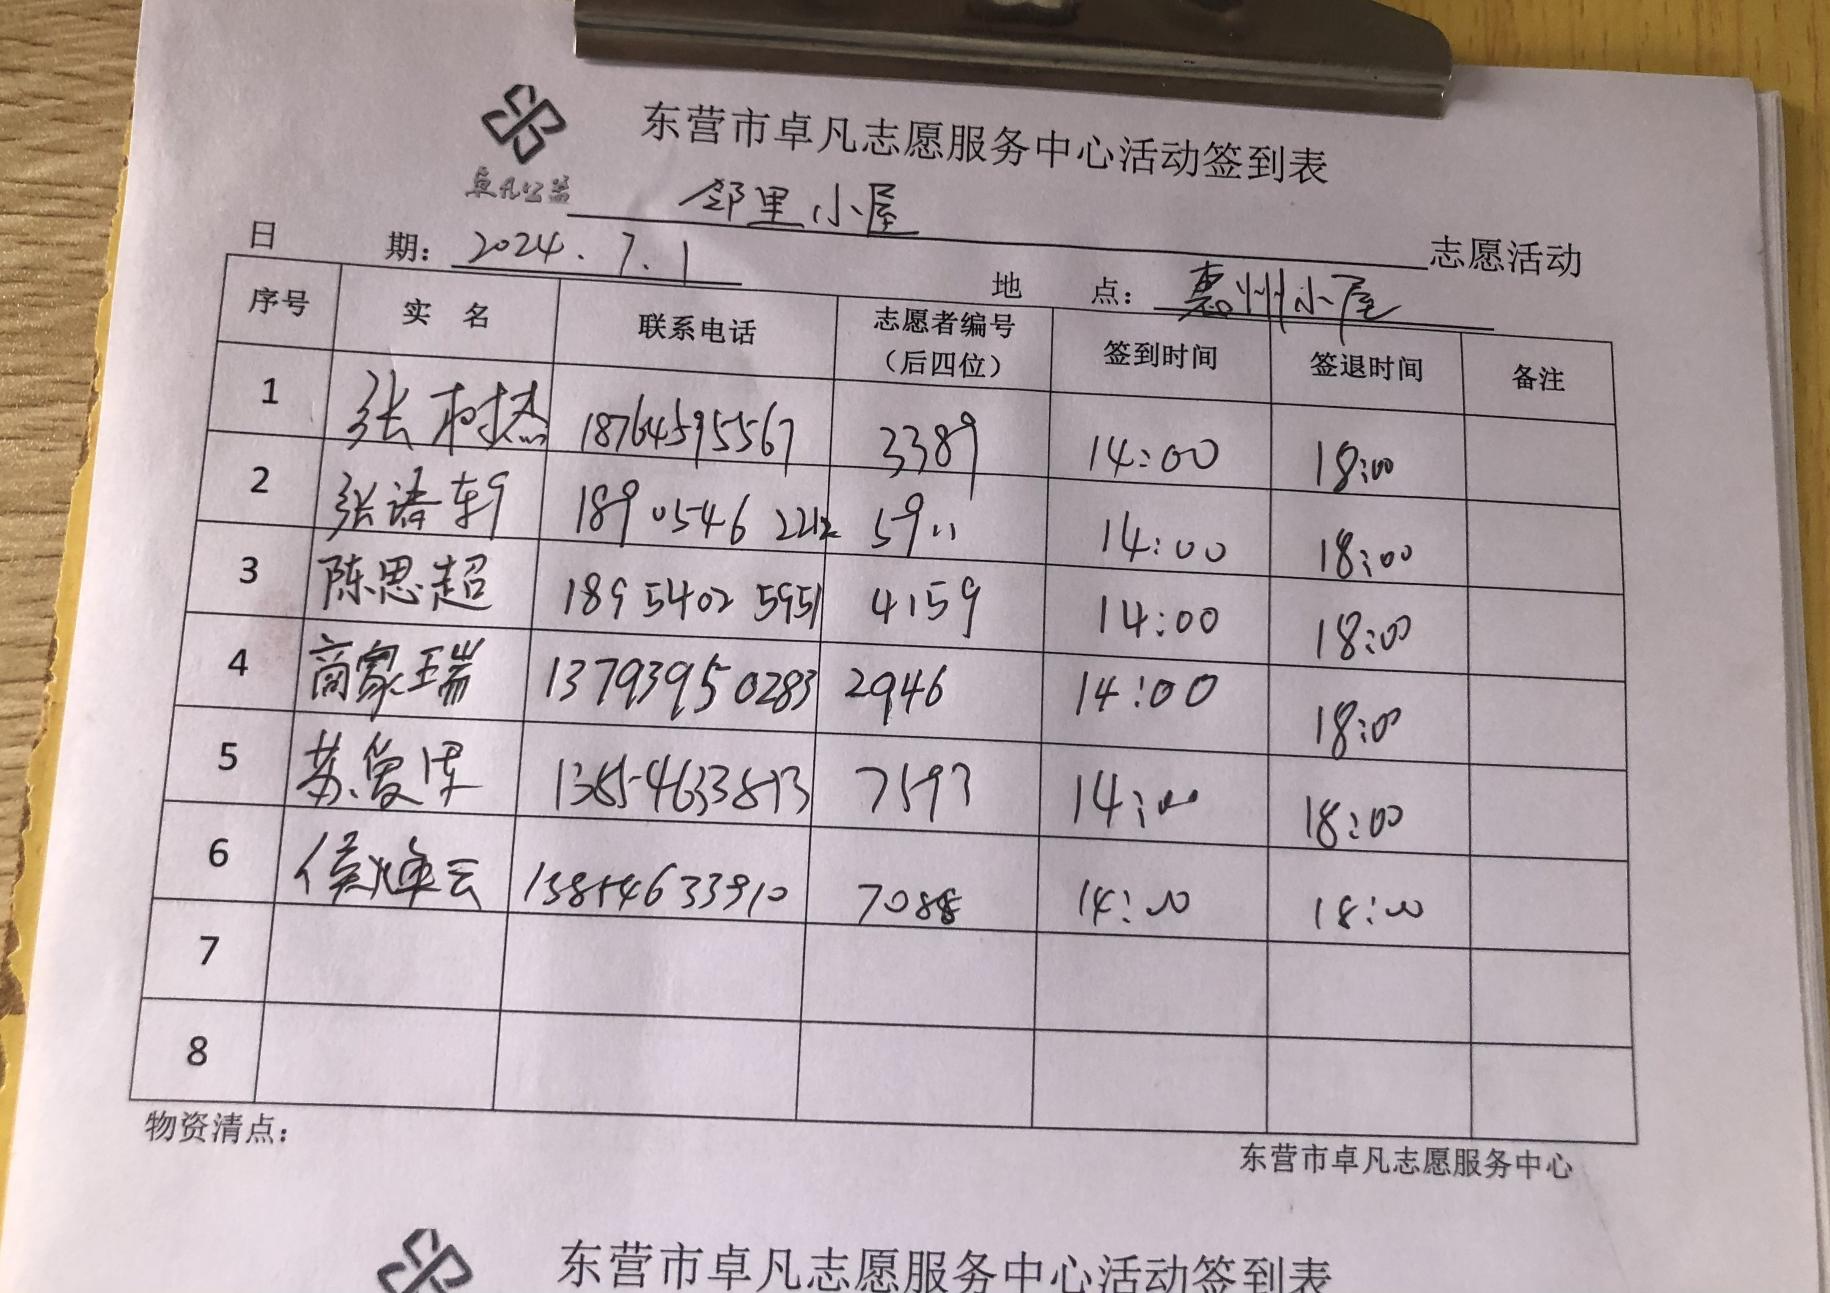 东营市卓凡志愿服务中心活动签到表
卓凡公益
邻里小屋 志愿活动
日 期：2024.7.1 地 点：惠州小屋
序号 实 名 联系电话 志愿者编号（后四位） 签到时间 签退时间 备注
1 张树杰 18764595567 3389 14:00 18:00
2 张语轩 18905462212 5911 14:00 18:00
3 陈思超 18954025951 4159 14:00 18:00
4 商家瑞 13793950283 2946 14:00 18:00
5 苏 13854633813 7593 14:00 18:00
6 侯 云 13854633910 7088 14:00 18:00
7
8
物资清点：
东营市卓凡志愿服务中心
东营市卓凡志愿服务中心活动签到表